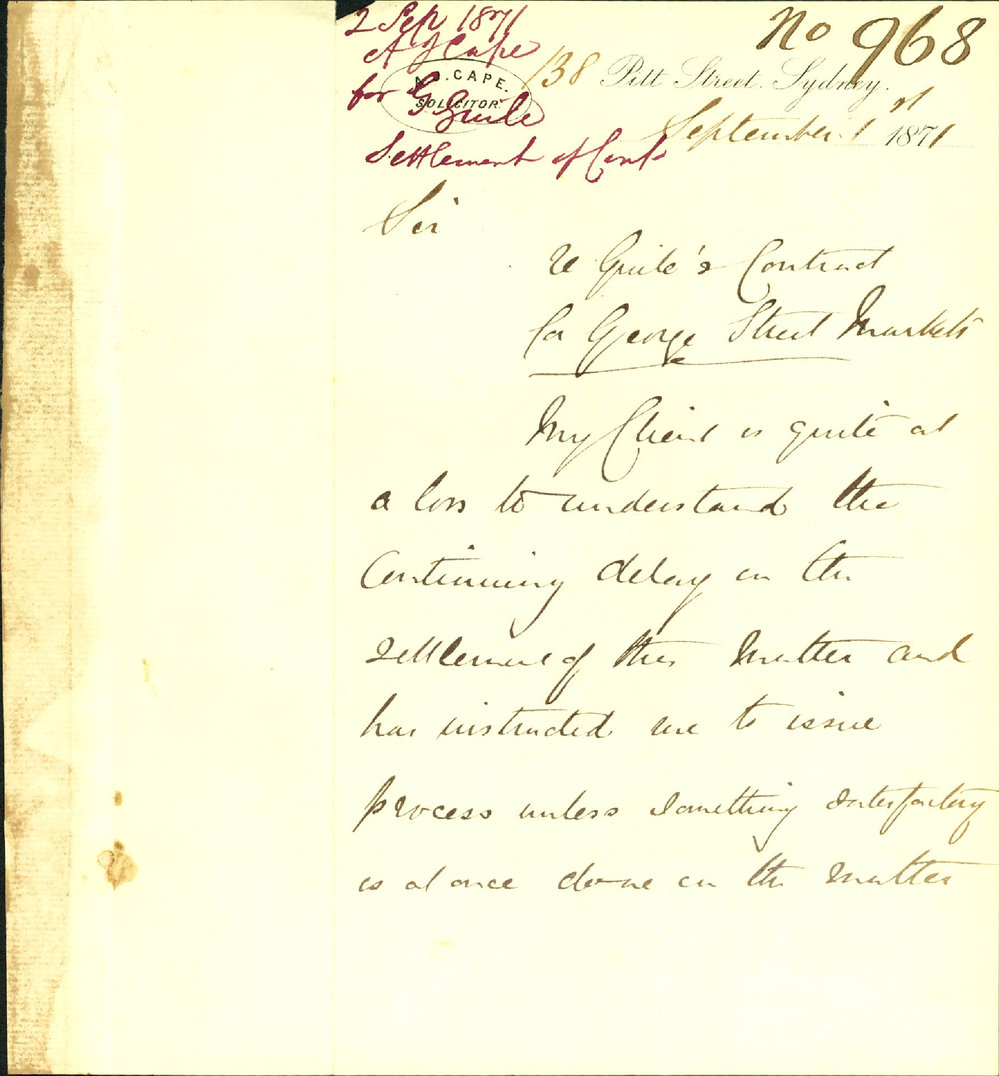 No 968
2 Sep 1871
A J Cape
for G Guile
Settlement of Cont
A.J. CAPE.
SOLICITOR
138 Pitt Street. Sydney.
September 1st 1871
Sir
re Guile's Contract
for George Street Markets
My Client is quite at
a loss to understand the
Continuing delay in the
settlement of this Matter and
has instructed me to issue
process unless something satisfactory
is at once done in the matter